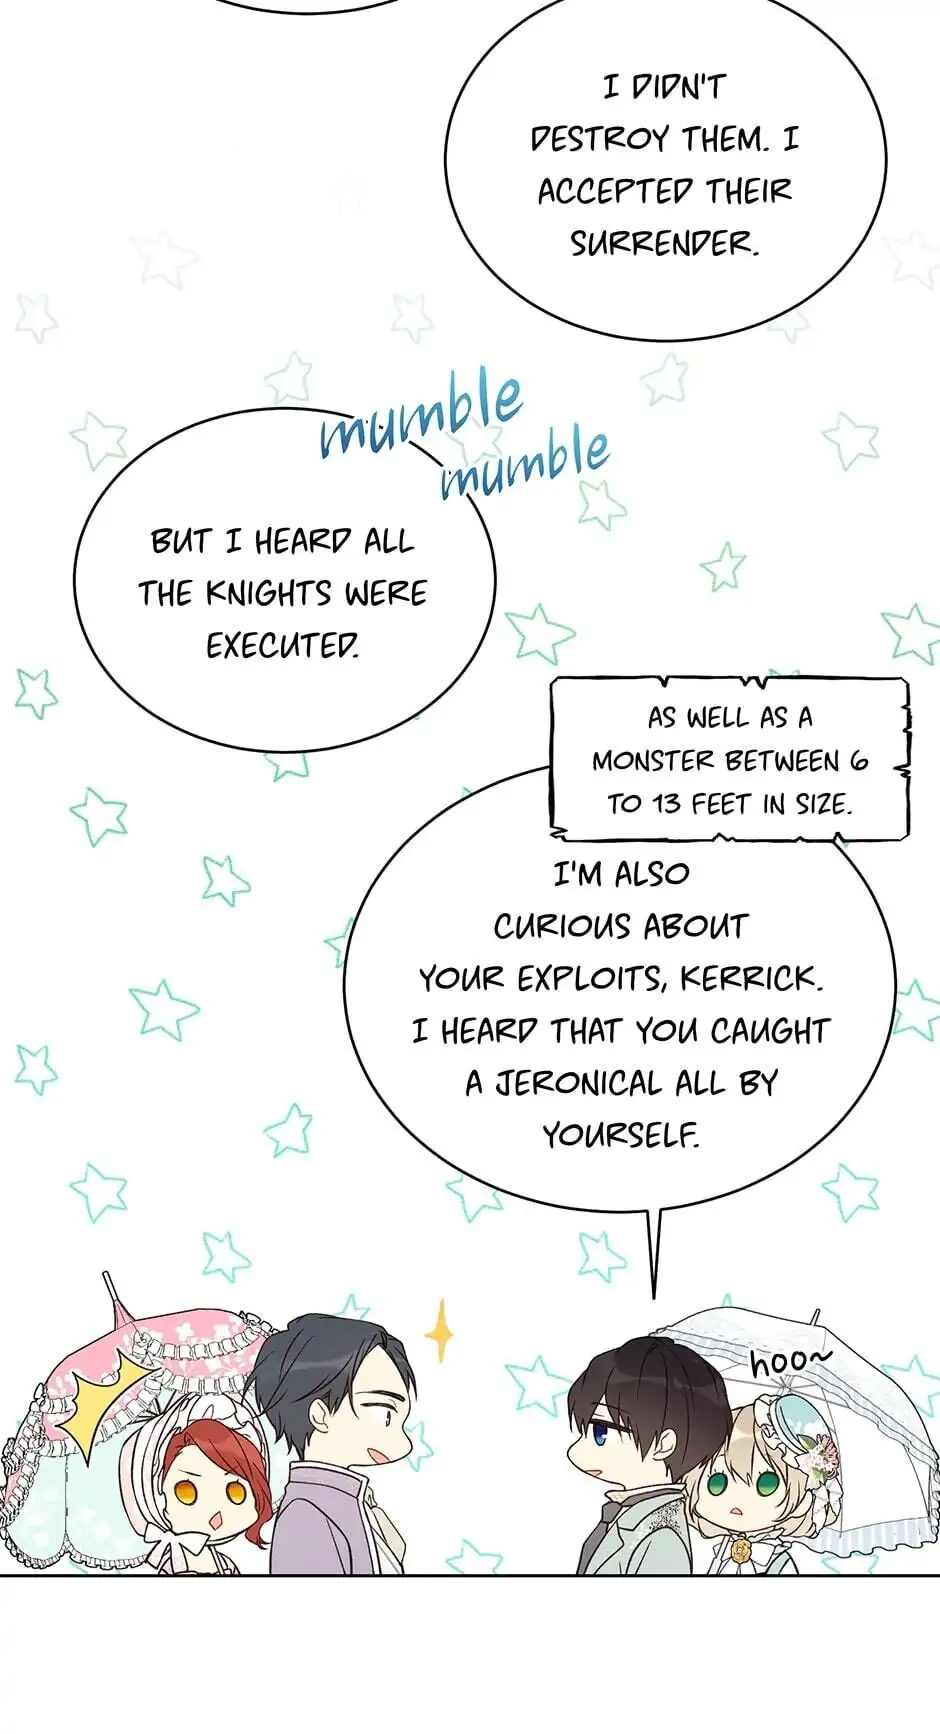 I DIDN'T
DESTROY THEM. I
ACCEPTED THEIR
SURRENDER.
mumble
mumble
BUT I HEARD ALL
THE KNIGHTS WERE
EXECUTED.
AS WELL AS A
MONSTER BETWEEN 6
TO 13 FEET IN SIZE.
I'M ALSO
CURIOUS ABOUT
YOUR EXPLOITS, KERRICK.
I HEARD THAT YOU CAUGHT
A JERONICAL ALL BY
YOURSELF.
hoo~